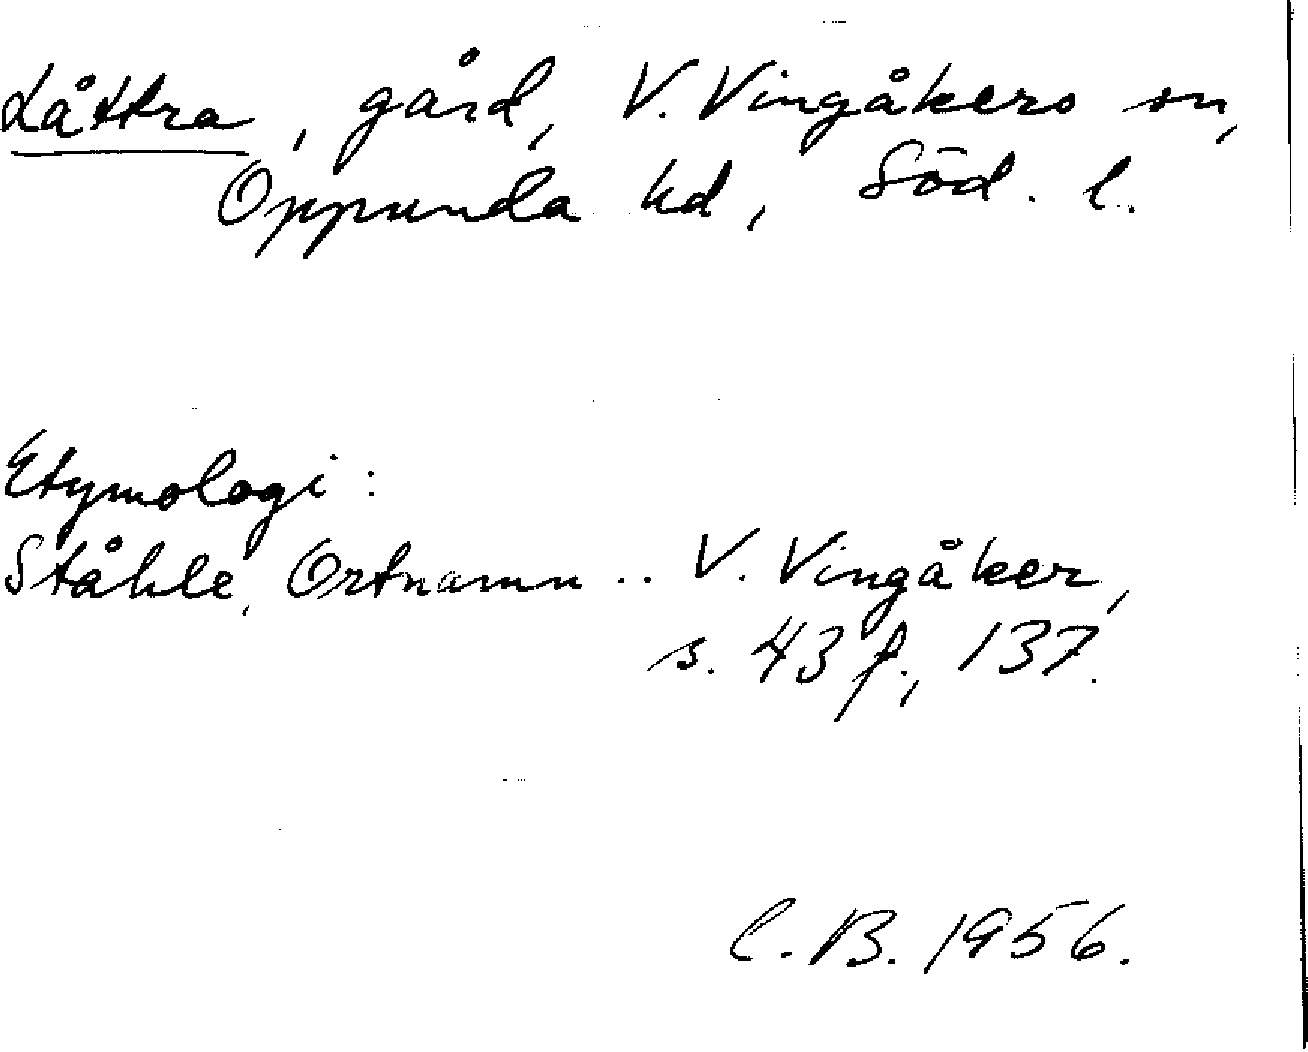 Låttra, gård, V. Vingåkers sn,
Oppunda hd, Söd. l.
Etymologi:
Ståhle, Ortnamn .. V. Vingåker,
s. 43 f., 137.
C. B. 1956.